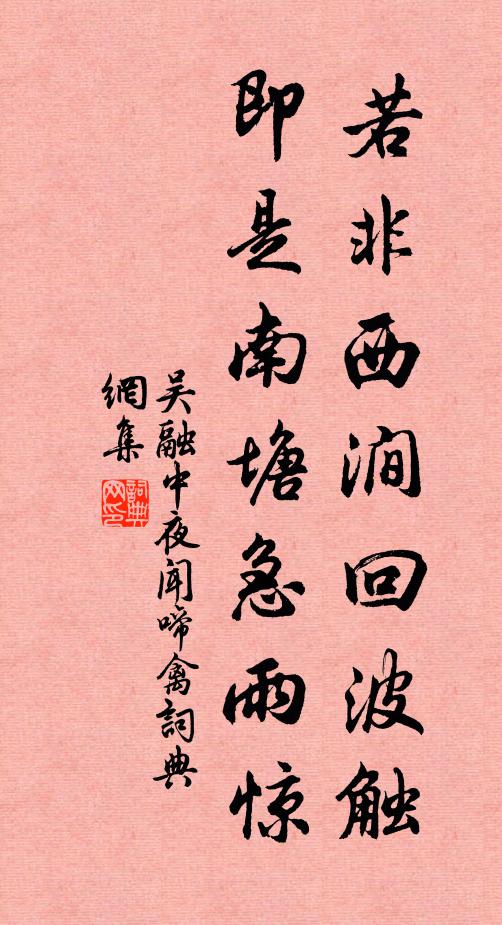 若非西涧回波触
即是南塘急雨惊
吴融中夜闻啼禽词典
網集
詞典网印